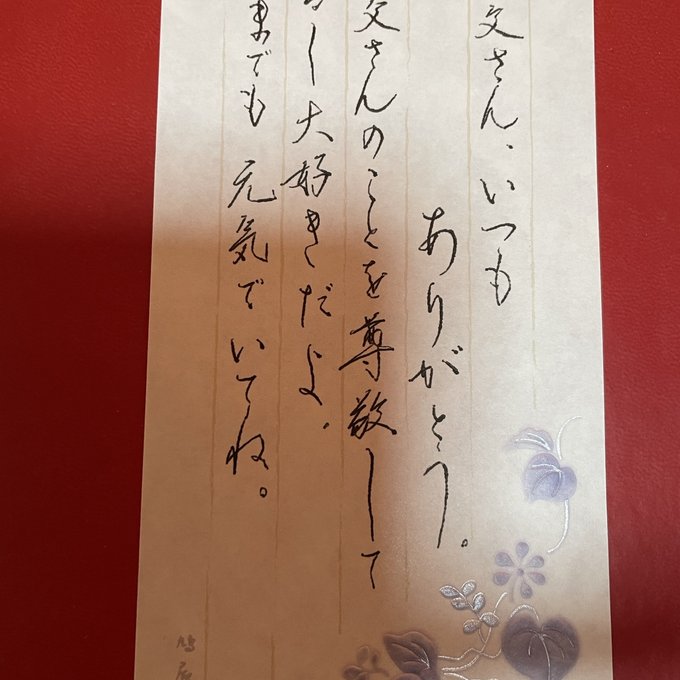 父さん、いつも
ありがとう。
父さんのことを尊敬して
るし大好きだよ。
までも元気でいてね。
鳩居